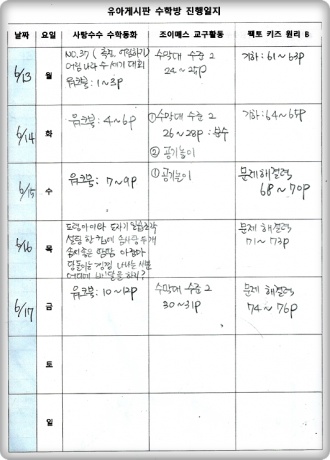 유아게시판 수학방 진행일지
날짜 요일 사탕수수 수학동화 조이매스 교구활동 팩토 키즈 원리 B
6/13 월
NO.37 (
어림나라 수세기 대회
워크북: 1~3p
수막대 수준 2
24~25p
기하: 61~63p
6/14 화
워크북: 4~6p
① 수막대 수준 2
26~28p : 분수
② 공기놀이
기하: 64~65p
6/15 수
워크북: 7~9p
① 공기놀이
문제해결력
68~70p
6/16 목
문제 해결력
71~73p
6/17 금
워크북: 10~12p
수막대 수준 2
30~31p
문제 해결력
74~76p
토
일